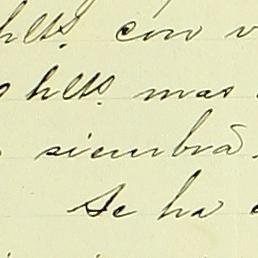 hlts. con
hlts. mas
siembra
Se ha